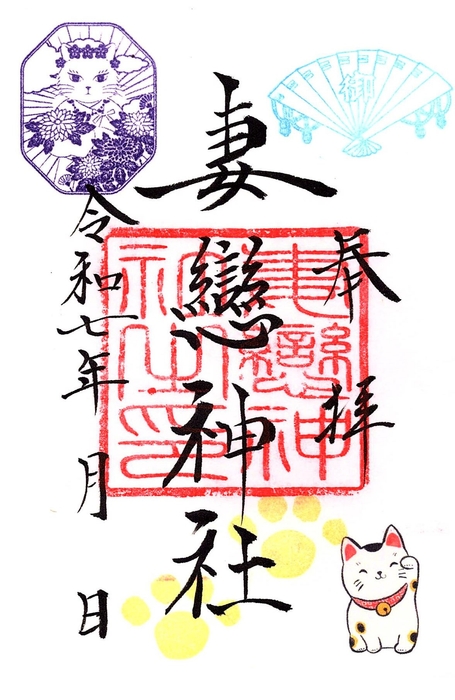 奉拝
妻戀神社
令和七年 月 日
妻戀神
社之印